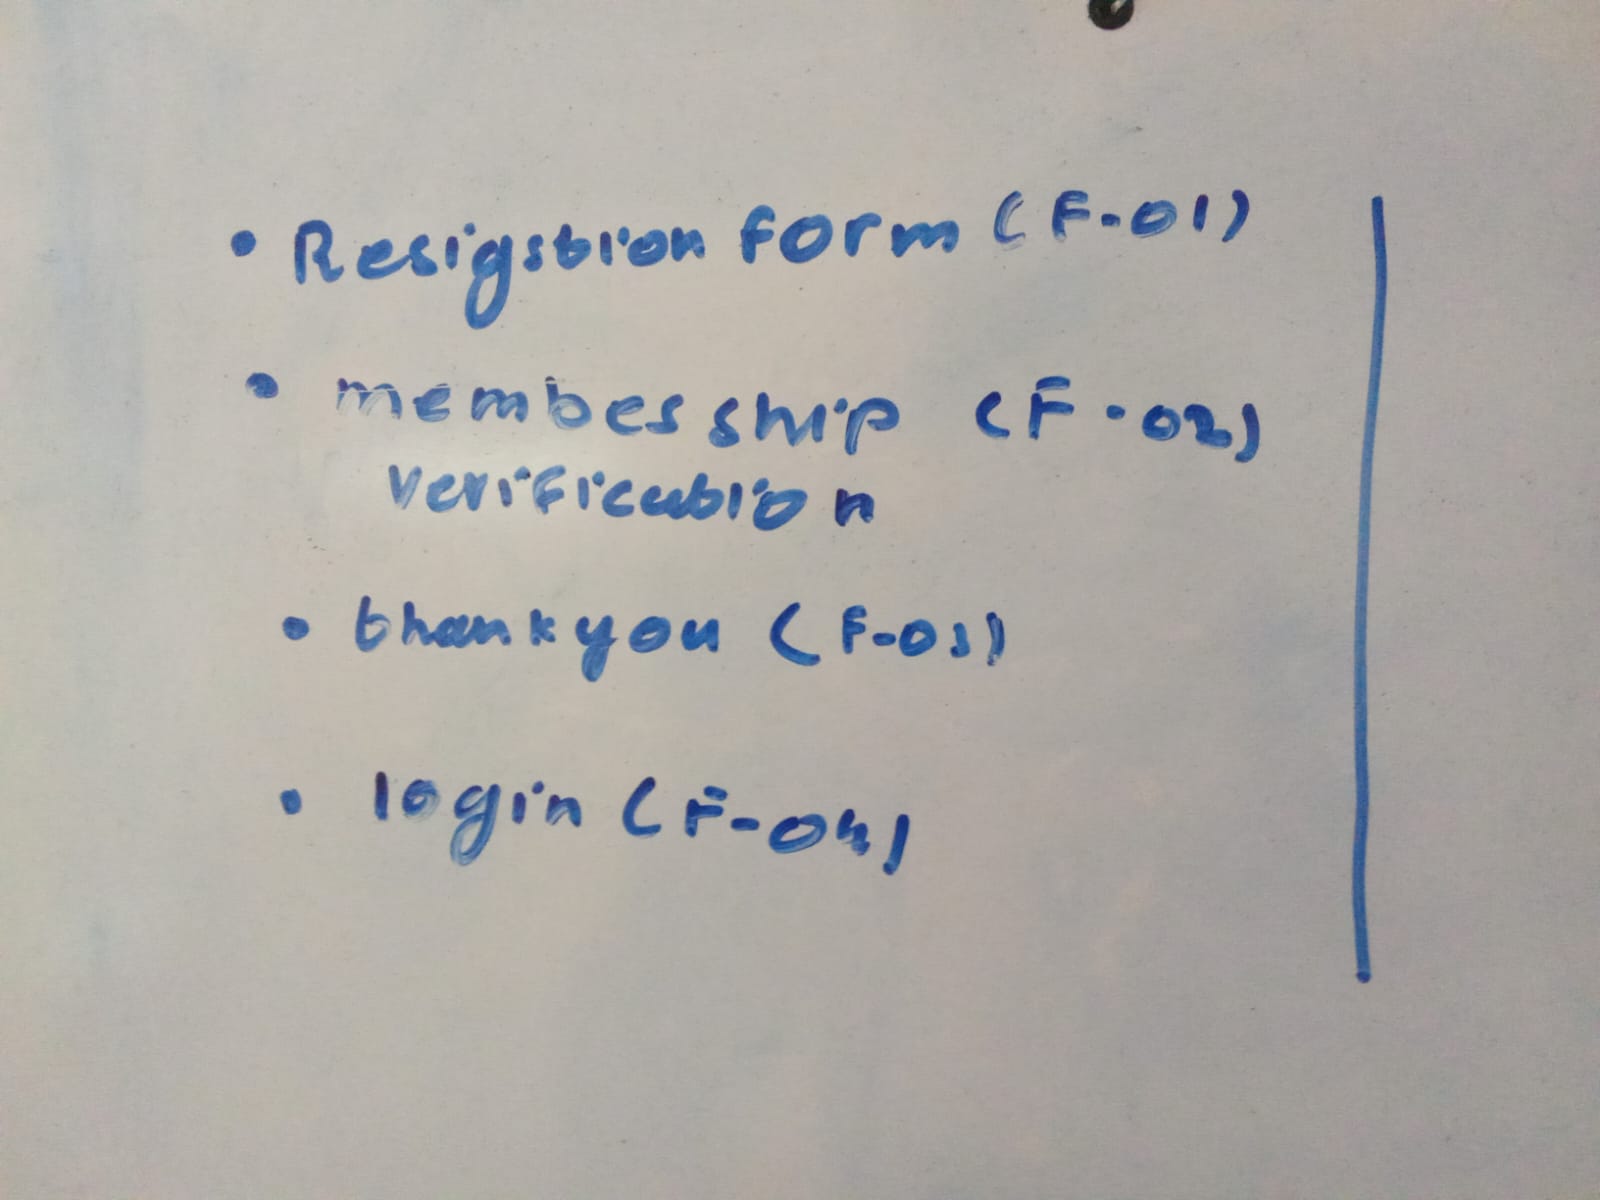 • Resigstion form (F-01)
• membership (F-02)
verification
• thankyou (F-03)
• login (F-04)